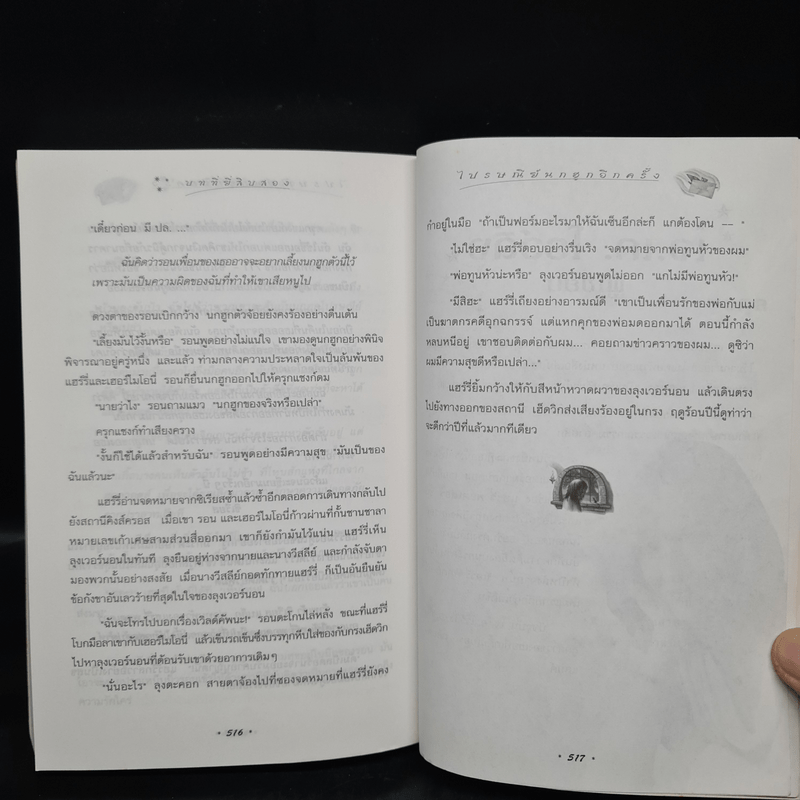 บทที่ยี่สิบสอง
"เดี๋ยวก่อน มี ปล. ..."
ฉันคิดว่ารอนเพื่อนของเธออาจจะอยากเลี้ยงนกฮูกตัวนี้ไว้
เพราะมันเป็นความผิดของฉันที่ทำให้เขาเสียหนูไป
ดวงตาของรอนเบิกกว้าง นกฮูกตัวจ้อยยังคงร้องอย่างตื่นเต้น
"เลี้ยงมันไว้งั้นหรือ" รอนพูดอย่างไม่แน่ใจ เขามองดูนกฮูกอย่างพินิจ
พิจารณาอยู่ครู่หนึ่ง และแล้ว ท่ามกลางความประหลาดใจเป็นล้นพ้นของ
แฮร์รี่และเฮอร์ไมโอนี่ รอนก็ยื่นนกฮูกออกไปให้ครุกแชงก์ดม
"นายว่าไง" รอนถามแมว "นกฮูกของจริงหรือเปล่า"
ครุกแชงก์ทำเสียงคราง
"งั้นก็ใช้ได้แล้วสำหรับฉัน" รอนพูดอย่างมีความสุข "มันเป็นของ
ฉันแล้วนะ"
แฮร์รี่อ่านจดหมายจากซิเรียสซ้ำแล้วซ้ำอีกตลอดการเดินทางกลับไป
ยังสถานีคิงส์ครอส เมื่อเขา รอน และเฮอร์ไมโอนี่ก้าวผ่านที่กั้นชานชาลา
หมายเลขเก้าเศษสามส่วนสี่ออกมา เขาก็ยังกำมันไว้แน่น แฮร์รี่เห็น
ลุงเวอร์นอนในทันที ลุงยืนอยู่ห่างจากนายและนางวีสลีย์ และกำลังจับตา
มองพวกนั้นอย่างสงสัย เมื่อนางวีสลีย์กอดทักทายแฮร์รี่ ก็เป็นอันยืนยัน
ข้อกังขาอันเลวร้ายที่สุดในใจของลุงเวอร์นอน
"ฉันจะโทรไปบอกเรื่องเวิลด์คัพนะ!" รอนตะโกนไล่หลัง ขณะที่แฮร์รี่
โบกมือลาเขากับเฮอร์ไมโอนี่ แล้วเข็นรถเข็นซึ่งบรรทุกหีบใส่ของกับกรงเฮ็ดวิก
ไปหาลุงเวอร์นอนที่ต้อนรับเขาด้วยอาการเดิมๆ
"นั่นอะไร" ลุงตะคอก สายตาจ้องไปที่ซองจดหมายที่แฮร์รี่ยังคง
• 516 •
ไปรษณีย์นกฮูกอีกครั้ง
กำอยู่ในมือ "ถ้าเป็นฟอร์มอะไรมาให้ฉันเซ็นอีกล่ะก็ แกต้องโดน -- "
"ไม่ใช่ฮะ" แฮร์รี่ตอบอย่างรื่นเริง "จดหมายจากพ่อทูนหัวของผม"
"พ่อทูนหัวน่ะหรือ" ลุงเวอร์นอนพูดไม่ออก "แกไม่มีพ่อทูนหัว!"
"มีสิฮะ" แฮร์รี่เถียงอย่างอารมณ์ดี "เขาเป็นเพื่อนรักของพ่อกับแม่
เป็นฆาตกรคดีอุกฉกรรจ์ แต่แหกคุกของพ่อมดออกมาได้ ตอนนี้กำลัง
หลบหนีอยู่ เขาชอบติดต่อกับผม... คอยถามข่าวคราวของผม... ดูซิว่า
ผมมีความสุขดีหรือเปล่า..."
แฮร์รี่ยิ้มกว้างให้กับสีหน้าหวาดผวาของลุงเวอร์นอน แล้วเดินตรง
ไปยังทางออกของสถานี เฮ็ดวิกส่งเสียงร้องอยู่ในกรง ฤดูร้อนปีนี้ดูท่าว่า
จะดีกว่าปีที่แล้วมากทีเดียว
• 517 •